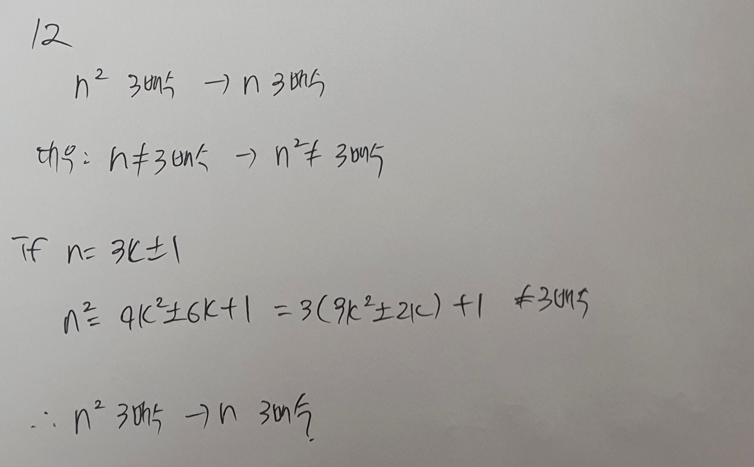 12
n² 3배수 → n 3배수
대우: n≠3배수 → n²≠ 3배수
If n= 3k±1
n²= 9k²±6k+1 = 3(3k²±2k)+1 ≠3배수
∴ n² 3배수 → n 3배수